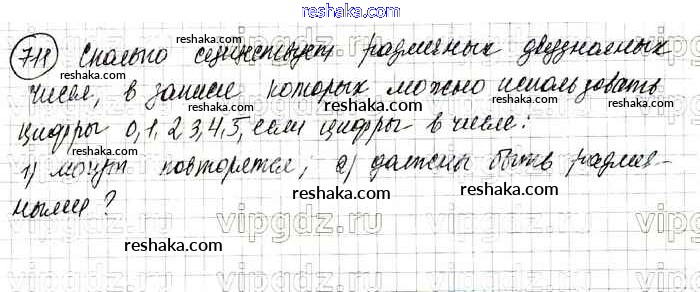 reshaka.ru
711 Сколько существует различных двузначных
чисел, в записи которых можно использовать
цифры 0, 1, 2 3, 4, 5, если цифры в числе:
1) могут повторятся; 2) должны быть различ-
ными?
reshaka.ru
reshaka.ru
reshaka.ru
reshaka.ru
reshaka.ru
reshaka.ru
reshaka.ru
reshaka.ru
vipgdz.ru
vipgdz.ru
vipgdz.ru
vipgdz.ru
vipgdz.ru
vipgdz.ru